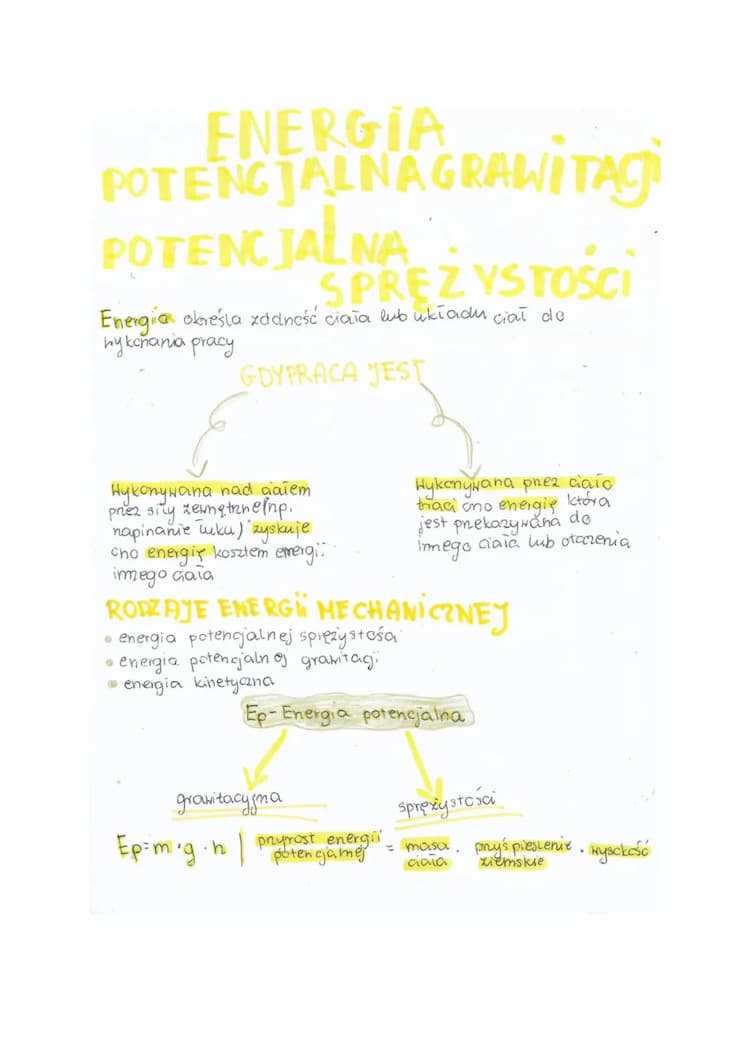 ENERGIA
POTENCJALNA GRAWITACJI
I
POTENCJALNA
SPRĘŻYSTOŚCI
Energia określa zdolność ciała lub układu ciał do
wykonania pracy
GDY PRACA JEST
Wykonywana nad ciałem
przez siły zewnętrzne (np.
napinanie łuku) zyskuje
ono energię kosztem energii
innego ciała
Wykonywana przez ciało
traci ono energię która
jest przekazywana do
innego ciała lub otoczenia
RODZAJE ENERGII MECHANICZNEJ
• energia potencjalnej sprężystości
• energia potencjalnej grawitacji
• energia kinetyczna
Ep - Energia potencjalna
grawitacyjna
sprężystości
Ep = m · g · h | przyrost energii potencjalnej = masa ciała · przyśpieszenie ziemskie · wysokość